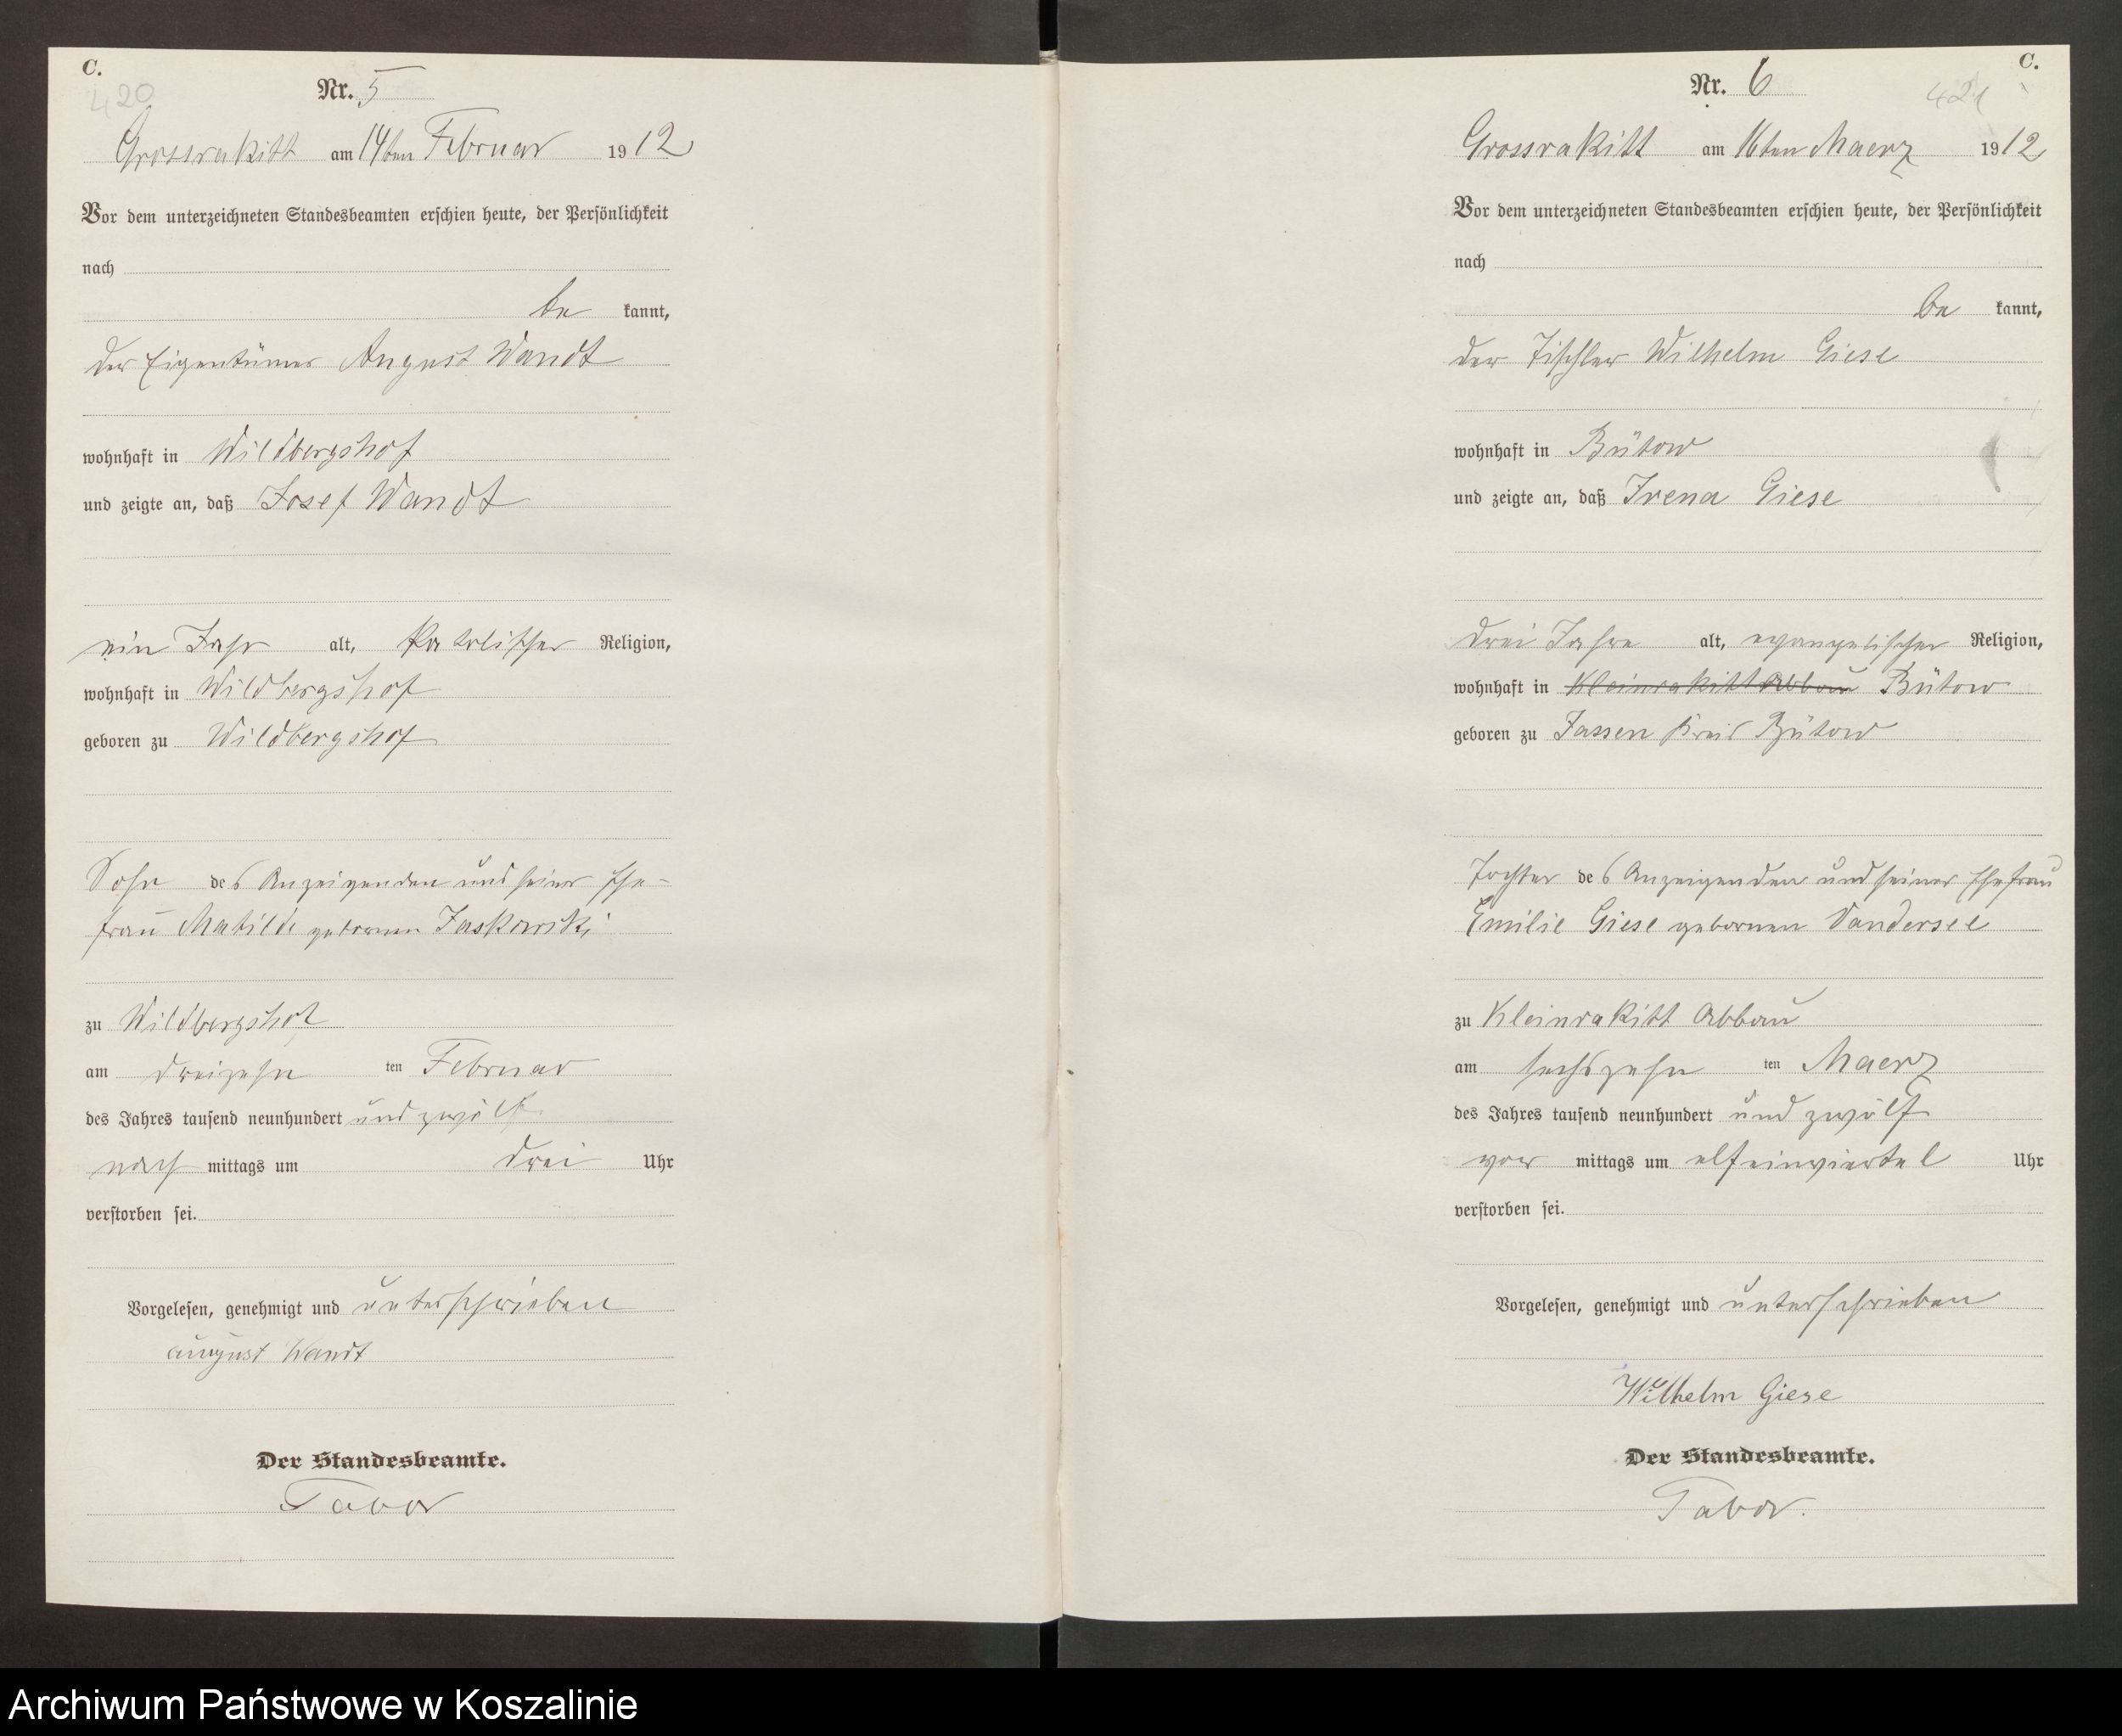 C.
420
Nr. 5
Grossrakitt am 14ten Februar 1912
Vor dem unterzeichneten Standesbeamten erschien heute, der Persönlichkeit
nach
be kannt,
der Eigentümer August Wandt
wohnhaft in Wildbergshof
und zeigte an, daß Josef Wandt
ein Jahr alt, katolischer Religion,
wohnhaft in Wildbergshof
geboren zu Wildbergshof
Sohn des Anzeigenden und seiner Ehe-
frau Matilde gebornen Jaskowski
zu Wildbergshof
am dreizehn ten Februar
des Jahres tausend neunhundert und zwölf
nach mittags um drei Uhr
verstorben sei.
Vorgelesen, genehmigt und unterschrieben
august Wandt
Der Standesbeamte.
Tabor
C.
421
Nr. 6
Grossrakitt am 16ten Maerz 1912
Vor dem unterzeichneten Standesbeamten erschien heute, der Persönlichkeit
nach
be kannt,
der Tischler Wilhelm Giese
wohnhaft in Bütow
und zeigte an, daß Irena Giese
drei Jahre alt, evangelischer Religion,
wohnhaft in Kleinrakitt Abbau Bütow
geboren zu Jassen Kreis Bütow
Tochter des Anzeigenden und seiner Ehefrau
Emilie Giese gebornen Vandersee
zu Kleinrakitt Abbau
am sechszehn ten Maerz
des Jahres tausend neunhundert und zwölf
vor mittags um elfeinviertel Uhr
verstorben sei.
Vorgelesen, genehmigt und unterschrieben
Wilhelm Giese
Der Standesbeamte.
Tabor.
Archiwum Państwowe w Koszalinie